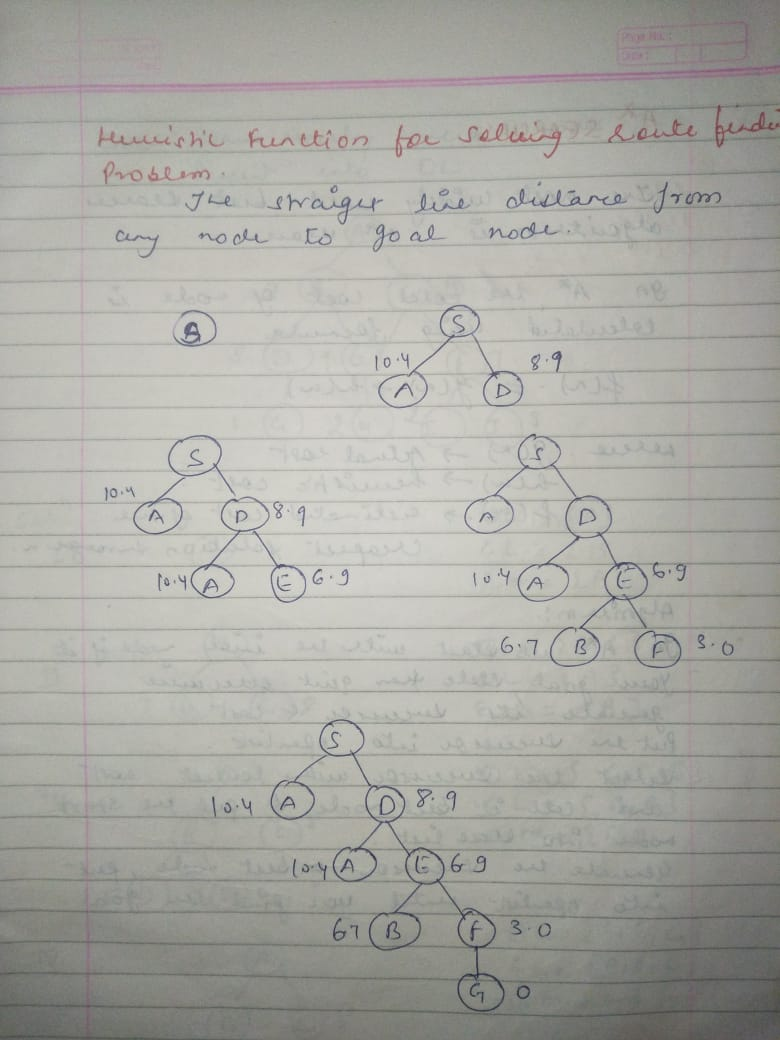 Page No.:
Date:
Heuristic Function for Solving Route findi
Problem.
The straiger line distance from
any node to goal node.
S
S
10.4 8.9
A D
S
10.4
A D 8.9
10.4 A E 6.9
S
A D
10.4 A E 6.9
6.7 B F 3.0
S
10.4 A D 8.9
10.4 A E 6.9
67 B F 3.0
G 0